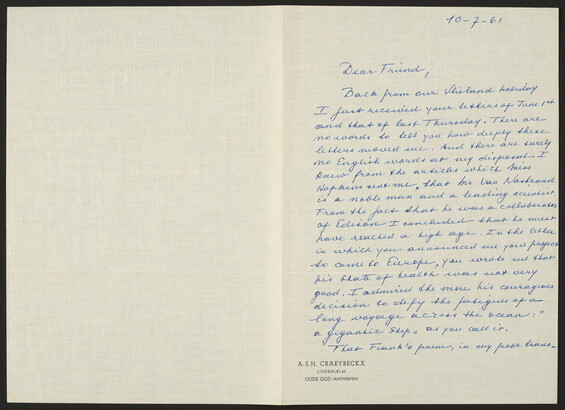 10-7-61
Dear Friend,
Back from our Vlieland holiday
I just received your letters of June 1st
and that of last Thursday. There are
no words to tell you how deeply these
letters moved me. And there are surely
no English words at my disposal. I
knew from the articles which Miss
Hopkins sent me, that Mr. Van Nostrand
is a noble man and a leading scientist.
From the fact that he was a collaborator
of Edison I concluded that he must
have reached a high age. In the letter
in which you announced me your project
to come to Europe, you wrote me that
his state of health was not very
good. I admired the more his courageous
decision to defy the fatigues of a
long voyage across the ocean: "
a gigantic step, as you call it.
That Frank's poem, in my poor trans-
A.S.H. CRAEYBECKX
OUDE GOD (ANTWERPEN)